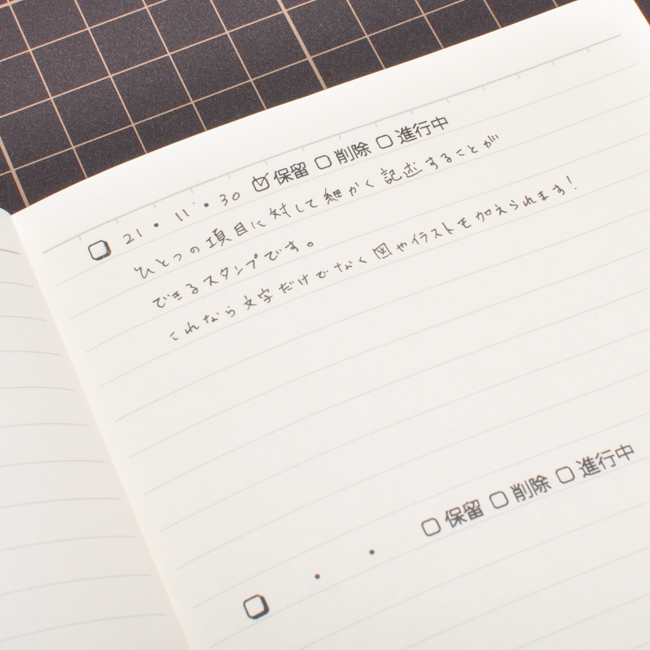 21・11・30 ☑保留 ☐削除 ☐進行中
ひとつの項目に対して細かく記述することが
できるスタンプです。
これなら文字だけでなく図やイラストも加えられます!
・ ・ ☐保留 ☐削除 ☐進行中